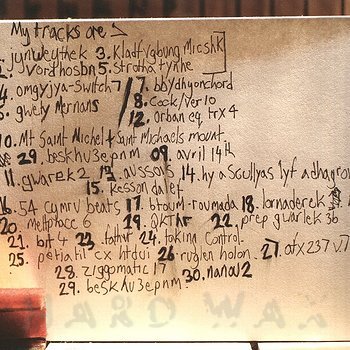 My tracks are
1. jynweythek 3. Kladfvgbung Micshk
2. Vordhosbn 5. strotha tynhe
4. omgyjya-switch7 7. bbydhyonchord
6. gwely Mernans 8. Cock/Ver10
12. orban eq. trx 4
10. Mt Saint Michel + Saint Michaels mount
29. beskhu3epnm 09. avril 14th
11. gwarek 2 13. aussois 14. hy a Scullyas lyf adhagrow
15. kesson dalef
16. 54 cymru beats 17. btoum-roumada 18. lornaderek
20. meltphace 6 19. QKThr 22. prep gwarlek 3b
21. bit 4 23. father 24. taking control
25. petiatil cx htdui 26. ruglen holon. 27. afx237 v7
28. ziggomatic 17 30. nanou2
29. beskhu3epnm